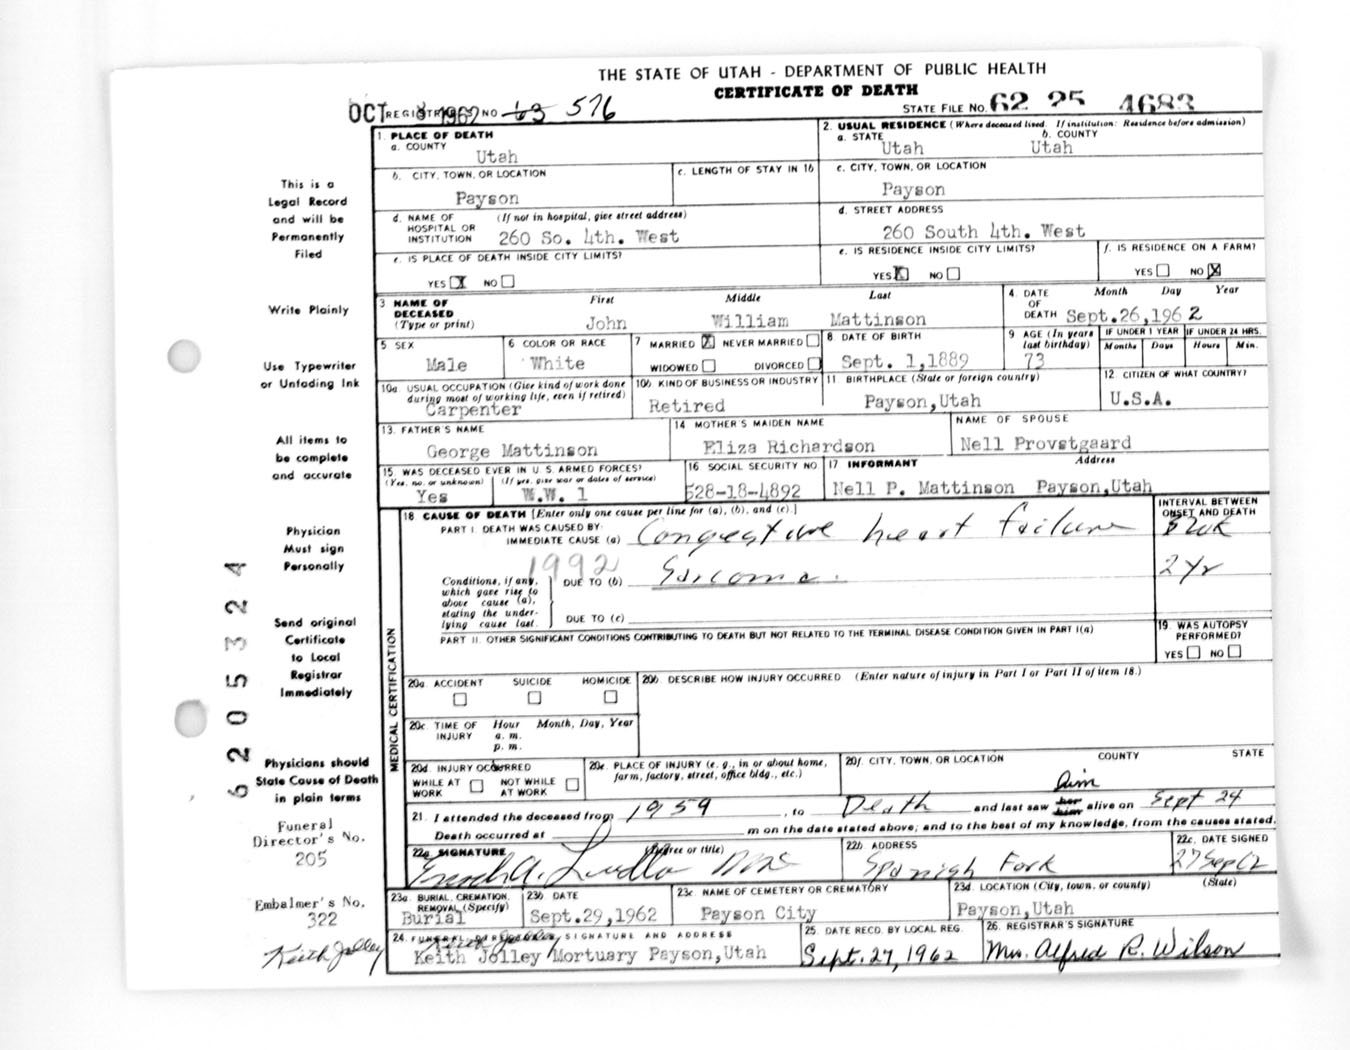 THE STATE OF UTAH - DEPARTMENT OF PUBLIC HEALTH
CERTIFICATE OF DEATH
OCT 8 1962 REGISTRAR'S NO 63 576
STATE FILE NO. 62 25 4683
1. PLACE OF DEATH
a. COUNTY
Utah
2. USUAL RESIDENCE (Where deceased lived. If institution: Residence before admission)
a. STATE b. COUNTY
Utah Utah
b. CITY, TOWN, OR LOCATION
Payson
c. LENGTH OF STAY IN 1b
c. CITY, TOWN, OR LOCATION
Payson
d. NAME OF HOSPITAL OR INSTITUTION (If not in hospital, give street address)
260 So. 4th. West
d. STREET ADDRESS
260 South 4th. West
e. IS PLACE OF DEATH INSIDE CITY LIMITS?
YES X NO
e. IS RESIDENCE INSIDE CITY LIMITS?
YES X NO
f. IS RESIDENCE ON A FARM?
YES NO X
3 NAME OF DECEASED (Type or print)
First Middle Last
John William Mattinson
4. DATE OF DEATH Month Day Year
Sept.26,1962
5 SEX
Male
6 COLOR OR RACE
White
7 MARRIED X NEVER MARRIED
WIDOWED DIVORCED
8. DATE OF BIRTH
Sept. 1,1889
9 AGE (In years last birthday)
73
IF UNDER 1 YEAR IF UNDER 24 HRS.
Months Days Hours Min.
10a. USUAL OCCUPATION (Give kind of work done during most of working life, even if retired)
Carpenter
10b. KIND OF BUSINESS OR INDUSTRY
Retired
11 BIRTHPLACE (State or foreign country)
Payson,Utah
12. CITIZEN OF WHAT COUNTRY?
U.S.A.
13. FATHER'S NAME
George Mattinson
14 MOTHER'S MAIDEN NAME
Eliza Richardson
NAME OF SPOUSE
Nell Provstgaard
15. WAS DECEASED EVER IN U. S. ARMED FORCES?
(Yes, no, or unknown) (If yes, give war or dates of service)
Yes W.W. 1
16 SOCIAL SECURITY NO
528-18-4892
17 INFORMANT Address
Nell P. Mattinson Payson,Utah
18 CAUSE OF DEATH [Enter only one cause per line for (a), (b), and (c).]
INTERVAL BETWEEN ONSET AND DEATH
PART I. DEATH WAS CAUSED BY:
IMMEDIATE CAUSE (a) Congestive heart failure
1992
Conditions, if any, which gave rise to above cause (a), stating the underlying cause last.
DUE TO (b) Sarcoma. 2 yr
DUE TO (c)
PART II. OTHER SIGNIFICANT CONDITIONS CONTRIBUTING TO DEATH BUT NOT RELATED TO THE TERMINAL DISEASE CONDITION GIVEN IN PART I(a)
19. WAS AUTOPSY PERFORMED?
YES NO
MEDICAL CERTIFICATION
20a. ACCIDENT SUICIDE HOMICIDE
20b. DESCRIBE HOW INJURY OCCURRED (Enter nature of injury in Part I or Part II of item 18.)
20c. TIME OF INJURY Hour Month, Day, Year
a. m.
p. m.
20d. INJURY OCCURRED
WHILE AT WORK NOT WHILE AT WORK
20e. PLACE OF INJURY (e. g., in or about home, farm, factory, street, office bldg., etc.)
20f. CITY, TOWN, OR LOCATION COUNTY STATE
21. I attended the deceased from 1959, to Death and last saw her him him alive on Sept 24
Death occurred at m on the date stated above; and to the best of my knowledge, from the causes stated.
22a. SIGNATURE (Degree or title)
22b. ADDRESS
Spanish Fork
22c. DATE SIGNED
27 Sep 62
23a. BURIAL, CREMATION, REMOVAL (Specify)
Burial
23b. DATE
Sept.29,1962
23c. NAME OF CEMETERY OR CREMATORY
Payson City
23d. LOCATION (City, town, or county) (State)
Payson,Utah
24. FUNERAL DIRECTOR'S SIGNATURE AND ADDRESS
Keith Jolley
Keith Jolley Mortuary Payson,Utah
25. DATE RECD. BY LOCAL REG.
Sept. 27, 1962
26. REGISTRAR'S SIGNATURE
Mrs. Alfred R. Wilson
This is a
Legal Record
and will be
Permanently
Filed
Write Plainly
Use Typewriter
or Unfading Ink
All items to
be complete
and accurate
Physician
Must sign
Personally
Send original
Certificate
to Local
Registrar
Immediately
Physicians should
State Cause of Death
in plain terms
Funeral
Director's No.
205
Embalmer's No.
322
Keith Jolley
6205324